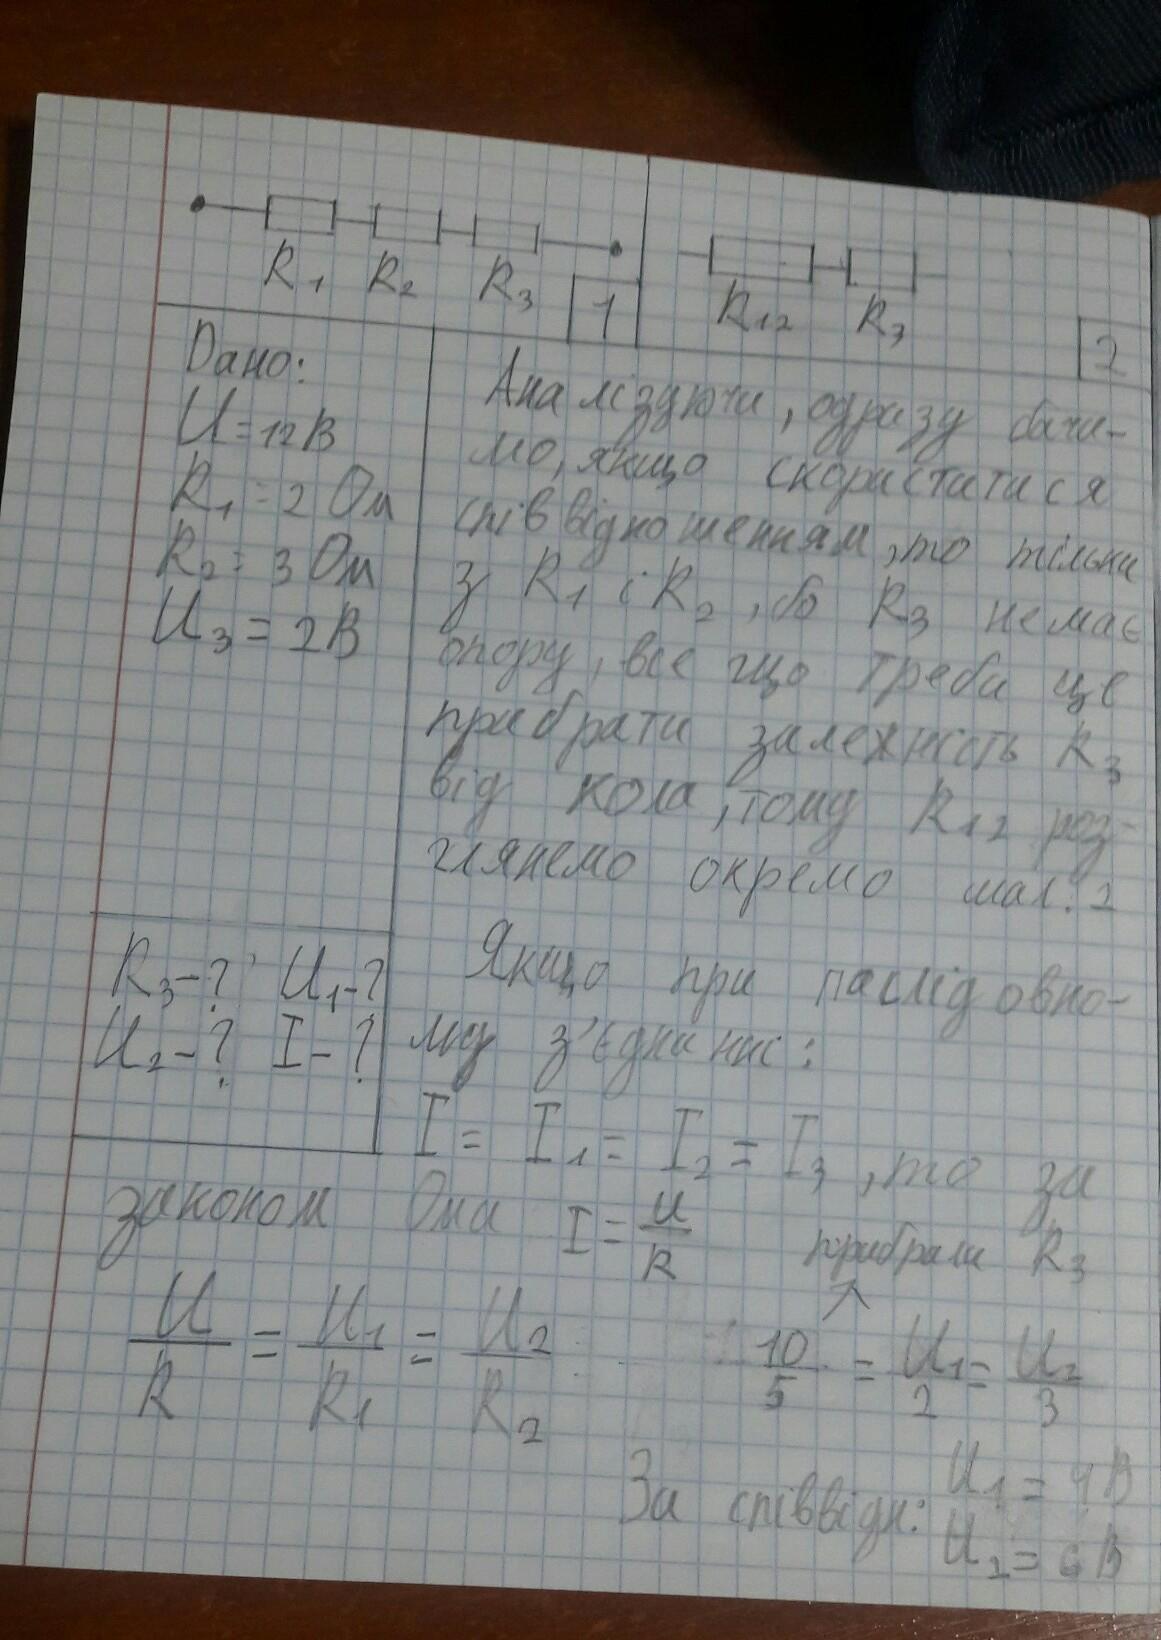 R₁ R₂ R₃ 1
R₁₂ R₃ 2
Дано:
U = 12 В
R₁ = 2 Ом
R₂ = 3 Ом
U₃ = 2 В
R₃ - ? U₁ - ?
U₂ - ? I - ?
Аналізуючи, одразу бачи-
мо, якщо скористатися
співвідношенням, то тільки
з R₁ і R₂, бо R₃ немає
опору, все що треба це
прибрати залежність R₃
від кола, тому R₁₂ роз-
глянемо окремо мал. 2
Якщо при послідовно-
му з'єднанні:
I = I₁ = I₂ = I₃, то за
законом Ома I = U/R
прибрали R₃
U/R = U₁/R₁ = U₂/R₂ 10/5 = U₁/2 = U₂/3
За співвідн: U₁ = 4 В
U₂ = 6 В